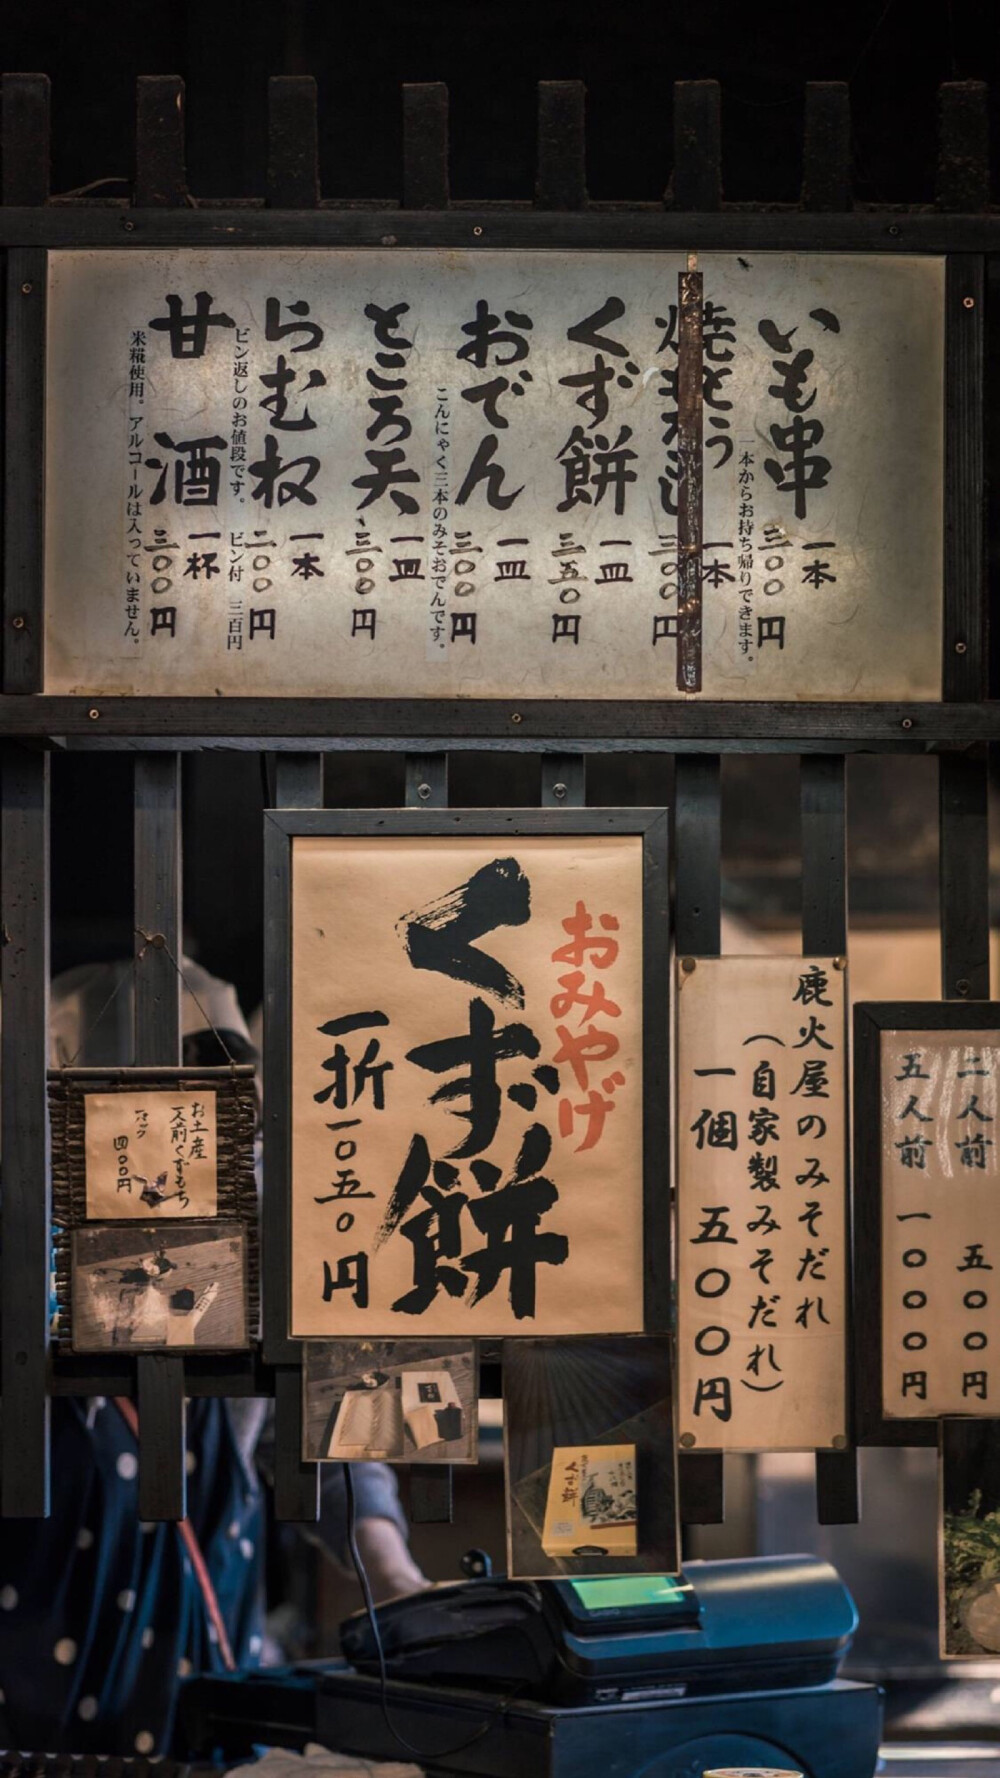 いも串 一本 三〇〇円
一本からお持ち帰りできます。
焼とう 一本
三〇〇円
くず餅 一皿 三五〇円
おでん 一皿 三〇〇円
こんにゃく三本のみそおでんです。
ところ天 一皿 三〇〇円
らむね 一本 二〇〇円
ビン返しのお値段です。 ビン付 三百円
甘酒 一杯 三〇〇円
米糀使用。アルコールは入っていません。
おみやげ
くず餅
一折 一〇五〇円
お土産
四〇〇円
鹿火屋のみそだれ
(自家製みそだれ)
一個 五〇〇円
二人前 五〇〇円
五人前 一〇〇〇円
くず餅